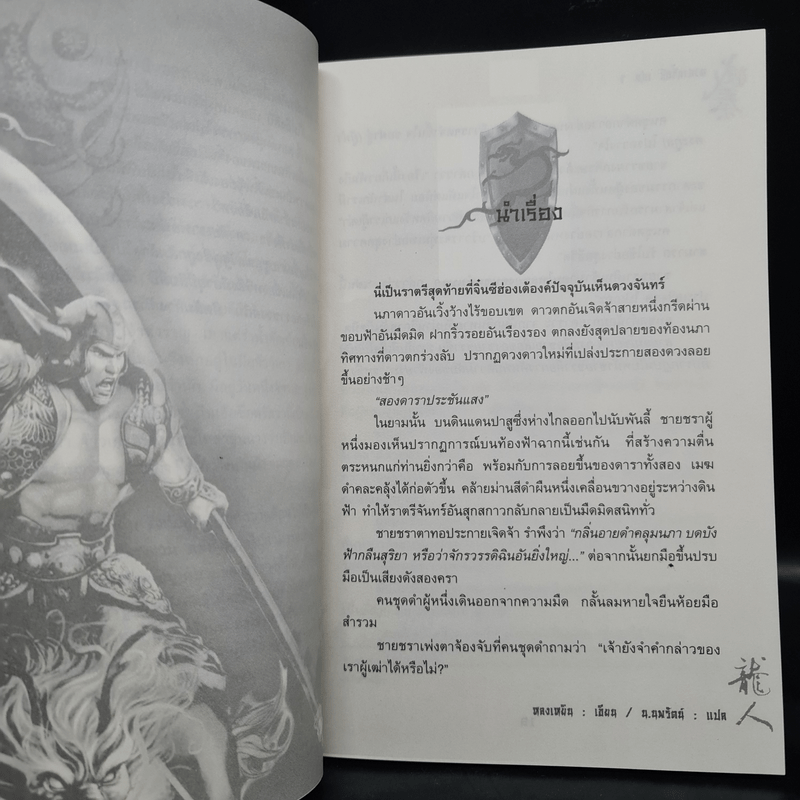 นำเรื่อง
นี่เป็นราตรีสุดท้ายที่จิ๋นซีฮ่องเต้องค์ปัจจุบันเห็นดวงจันทร์
นภาดาวอันเวิ้งว้างไร้ขอบเขต ดาวตกอันเจิดจ้าสายหนึ่งกรีดผ่าน
ขอบฟ้าอันมืดมิด ฝากริ้วรอยอันเรืองรอง ตกลงยังสุดปลายของท้องนภา
ทิศทางที่ดาวตกร่วงลับ ปรากฏดวงดาวใหม่ที่เปล่งประกายสองดวงลอย
ขึ้นอย่างช้าๆ
"สองดาราประชันแสง"
ในยามนั้น บนดินแดนปาสู่ซึ่งห่างไกลออกไปนับพันลี้ ชายชราผู้
หนึ่งมองเห็นปรากฏการณ์บนท้องฟ้าฉากนี้เช่นกัน ที่สร้างความตื่น
ตระหนกแก่ท่านยิ่งกว่าคือ พร้อมกับการลอยขึ้นของดาราทั้งสอง เมฆ
ดำคละคลุ้งได้ก่อตัวขึ้น คล้ายม่านสีดำผืนหนึ่งเคลื่อนขวางอยู่ระหว่างดิน
ฟ้า ทำให้ราตรีจันทร์อันสุกสกาวกลับกลายเป็นมืดมิดสนิททั่ว
ชายชราตาทอประกายเจิดจ้า รำพึงว่า "กลิ่นอายดำคลุมนภา บดบัง
ฟ้ากลืนสุริยา หรือว่าจักรวรรดิฉินอันยิ่งใหญ่..." ต่อจากนั้นยกมือขึ้นปรบ
มือเป็นเสียงดังสองครา
คนชุดดำผู้หนึ่งเดินออกจากความมืด กลั้นลมหายใจยืนห้อยมือ
สำรวม
ชายชราเพ่งตาจ้องจับที่คนชุดดำถามว่า "เจ้ายังจำคำกล่าวของ
เราผู้เฒ่าได้หรือไม่?"
หลงเหยิน : เขียน / น.นพรัตน์ : แปล
龍人